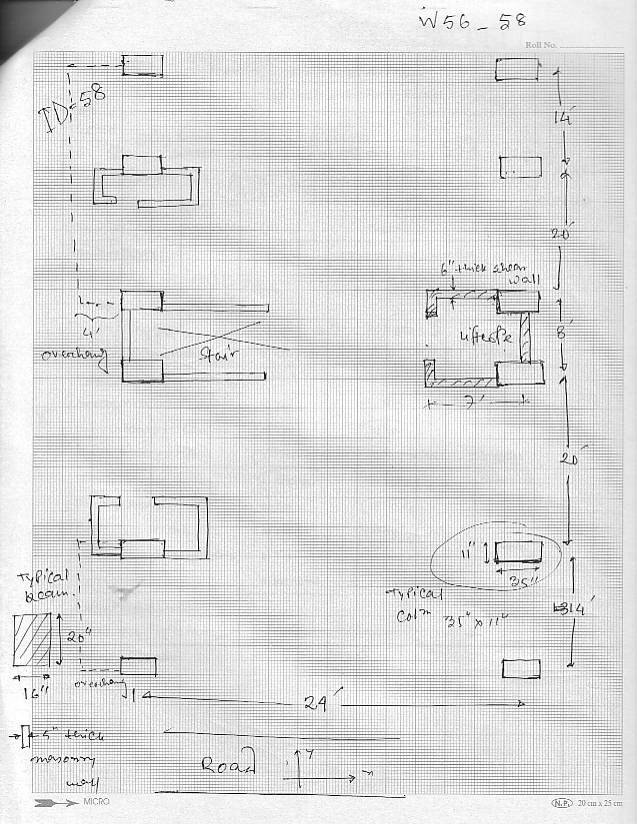 W56_58
Roll No.
ID-58
14'
20'
6" thick shear
wall
4'
overhang
Stair
8'
7'
20'
11"
35"
Typical
beam
Typical
Colm 35" x 11"
14'
20"
16"
overhang
24'
5" thick
masonry
wall
Road
y
x
MICRO
N.P. 20 cm x 25 cm